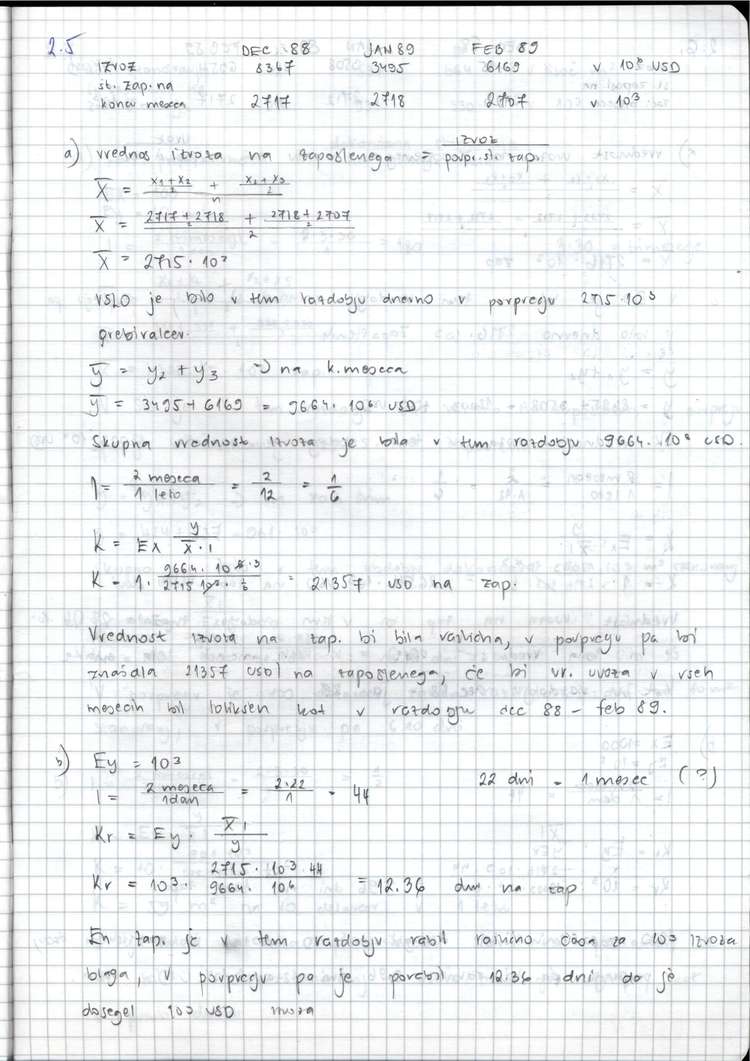 2.5
DEC 88 JAN 89 FEB 89
IZVOZ 8367 3495 6169 v 10⁶ USD
št. zap. na
koncu meseca 2717 2718 2707 v 10³
a) vrednos izvoza na zaposlenega = izvoz / povpr. št. zap.
X̄ = (x₁ + x₂)/2 + (x₂ + x₃)/2 / n
X̄ = (2717 + 2718)/2 + (2718 + 2707)/2 / 2
X̄ = 2715 · 10³
je bilo v tem razdobju dnevno v povprecju 2715 · 10³
prebivalcev.
ȳ = y₂ + y₃ => na k. meseca
ȳ = 3495 + 6169 = 9664 · 10⁶ USD
Skupna vrednost izvoza je bila v tem razdobju 9664 · 10⁶ USD.
l = 2 meseca / 1 leto = 2/12 = 1/6
K = Ex y / X̄ · l
K = 1 · 9664 · 10⁶ ³ / 2715 10³ · 1/6 = 21357 USD na zap.
Vrednost izvoza na zap. bi bila različna, v povprecju pa bi
znašala 21357 USD na zaposlenega, če bi vr. uvoza v vseh
mesecih bil tolikšen kot v razdobju dec 88 - feb 89.
b) Ey = 10³
l = 2 meseca / 1 dan = 2·22 / 1 = 44 22 dni = 1 mesec (?)
Kr = Ey · X̄ l / y
Kr = 10³ · 2715 · 10³ · 44 / 9664 · 10⁶ = 12.36 dni na zap
En zap. je v tem razdobju rabil različno časa za 10³ izvoza
blaga, v povprecju pa je porabil 12.36 dni da je
dosegel 103 USD izvoza